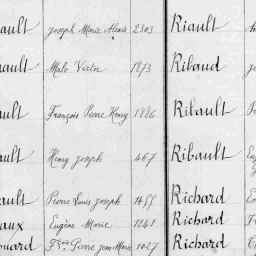 ault Joseph Marie Alexis 2303 Riault
ault Malo Victor 1873 Ribaud
ault François Pierre Henry 1886 Ribault
ault Henry Joseph 467 Ribault
ault Pierre Louis Joseph 1455 Richard
aux Eugène Marie 1241 Richard
ouard Fçois Pierre Jean Marie 1027 Richard